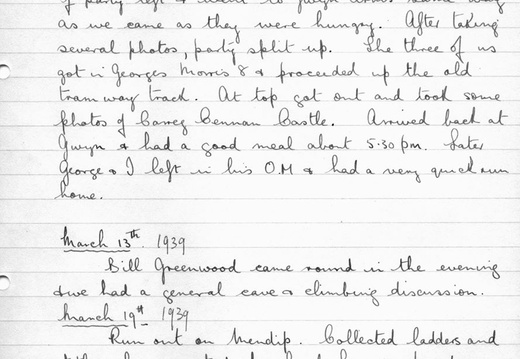 of party left & went to Gwyn
as we came as they were hungry. After taking
several photos, party split up. The three of us
got in Georges Morris 8 & proceeded up the old
tramway track. At top got out and took some
photos of Carreg Cennan Castle. Arrived back at
Gwyn & had a good meal about 5.30 pm. Later
George & I left in his O.M & had a very quick run
home.
March 13th. 1939
Bill Greenwood came round in the evening
& we had a general cave & climbing discussion.
March 19th 1939
Run out on Mendip. Collected ladders and